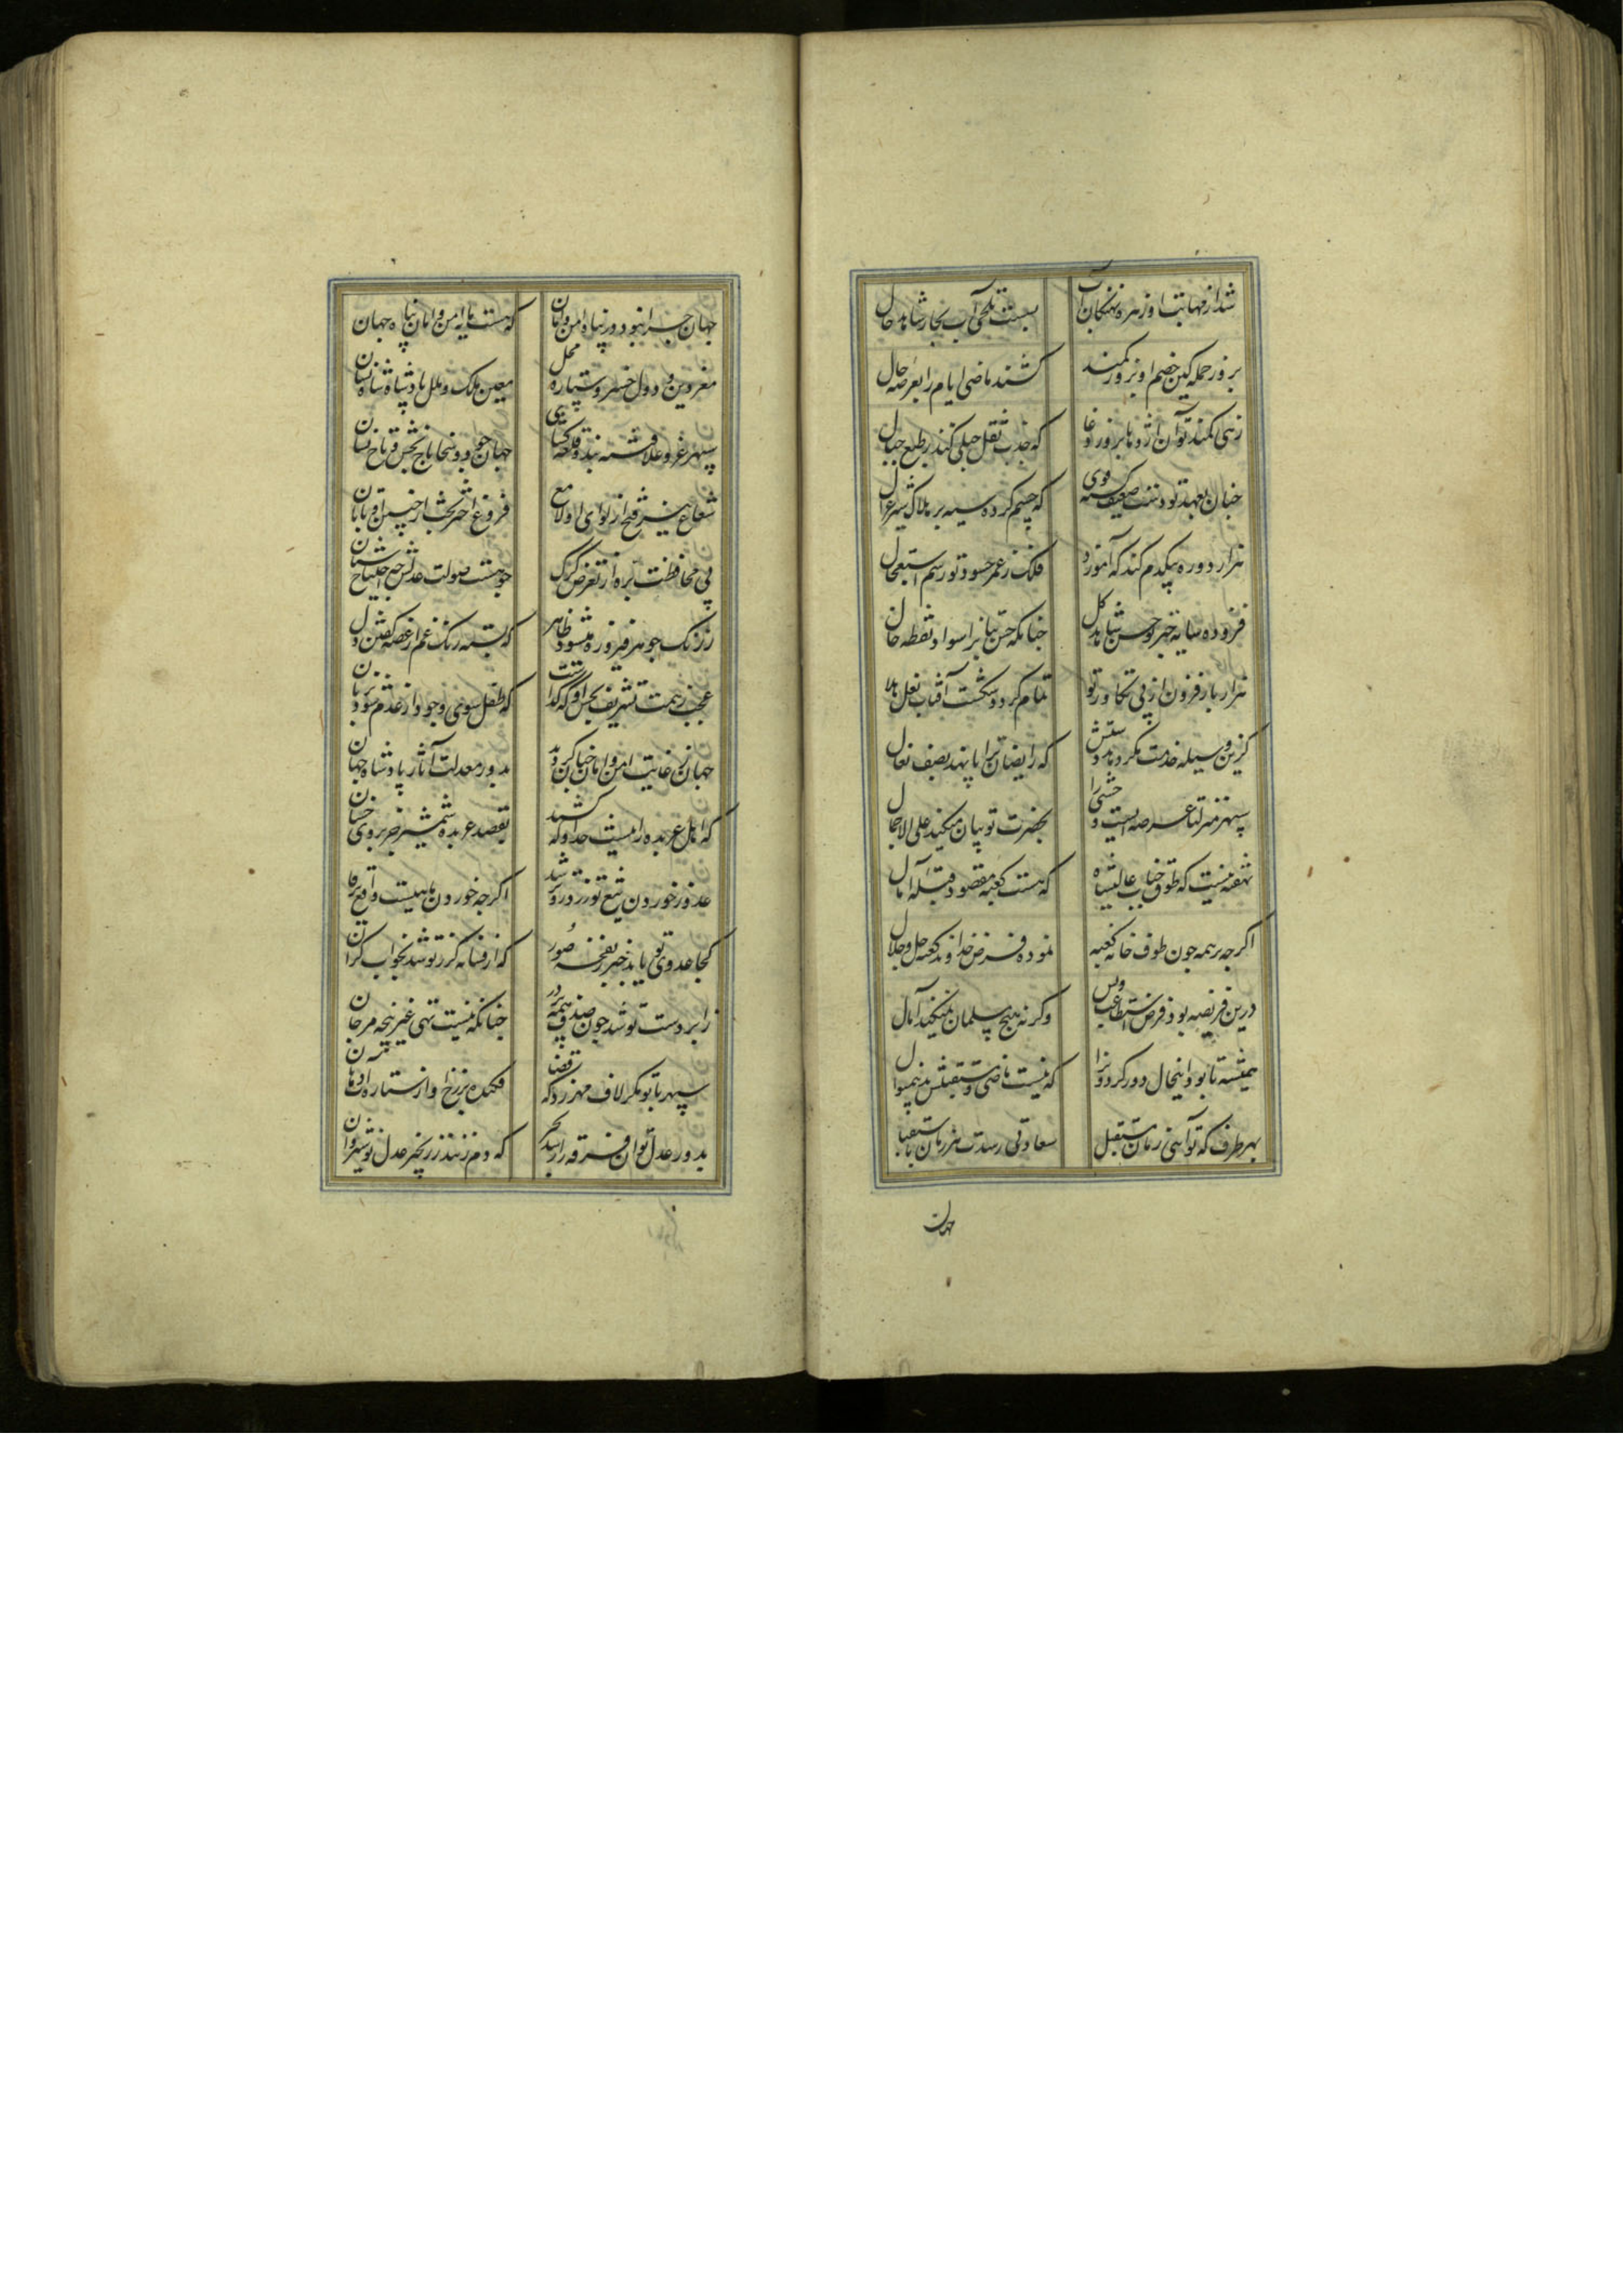 شد از مهابت او زهره نهنگان آب بست تلخی آب بحار شاهد حال
بروز حمله کین خصم او بزور کمند کشند ماضی ایام را بعرصه حال
زهی کمند تو آن اژدها بروز وغا که جذب ثقل جبلی کند ز طبع جبال
چنان بعهد تو دست ضعیف گشته قوی که چشم کرده سیه بر هلاک شیر غزال
هزار دوره بیکدم کند که آموزد فلک ز عمر حسود تو رسم استعجال
فزوده سایه چتر تو حسن شاهد کل چنانکه حسن بتانرا سواد نقطه خال
هزار بار فزون از پی تکاور تو تمام کرد و شکست آفتاب نعل هلال
کزین وسیله خدمت مکر دهد دستش که رایضان ترا پا نهد بصف نعال
سپهر منزلتا عرضه ایست وحشی را بحضرت تو بیان میکند علی الاجمال
نهفته نیست که طوف جناب عالیشاه که هست کعبه مقصود و قبله آمال
اکرچه بر همه چون طوف خانه کعبه نموده فرض خداوند کعبه جل و جلال
درین فریضه بود فرض استطاعت و بس وکرنه هیچ مسلمان نمیکند اهمال
همیشه تا بود اینحال دور کردونرا که نیست ماضی و مستقبلش بیک منوال
بهر طرف که تو آیی زمان مستقبل سعادتی رسدت هر زمان باستقبال
جهان
جهان چرا نبود در پناه امن و امان که هست سایه امن و امان پناه جهان
معز دین و دول خسرو ستاره محل معین ملک و ملل پادشاه شاه نشان
سپهر عز و علا فتنه بند قلعه کشای جهان جود و سخا تاج بخش و تاج ستان
شعاع نیر فتح از لوای او لامع فروغ اختر بخت از جبین او تابان
پی محافظت بره از تعرض کرک چو هست صولت عدلش چه احتیاج شبان
ز زنک جوهر فیروزه میشود ظاهر که بسته رنک غم از غصه کفش دل کان
عجب ز همت تشریف بخش او که کذاشت که طفل سوی وجود از عدم شود عریان
جهان ز غایت امن و امان چنان کردید بدور معدلت آثار پادشاه جهان
که اهل عربده را نیست حد او که کشند بقصد عربده شمشیر جز بروی فسان
عدو ز خوردن تیغ تو زرد رو شد اکرچه خوردن ماهیست دافع یرقان
کجا عدوی تو یابد خبر ز نفخه صور که از فسانه کرز تو شد بخواب کران
ز ابر دست تو شد چون صدف همه پر در چنانکه نیست تهی غیر پنجه مرجان
سپهر با تو مکر لاف مهر زد که قضا فکنده بر رخ او از ستاره
بدور عدل تو ان فرقه را رسد زنجیر که دم زنند ز زنجیر عدل نوشیروان